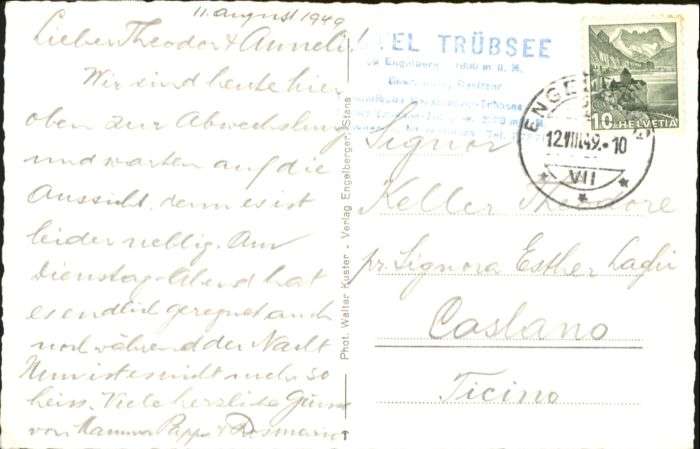 11. August 1949
Lieber Theodor & Anneli!
Wir sind heute hier
oben zur Abwechslung
und warten auf die
Aussicht, denn es ist
leider neblig. Am
Dienstag-Abend hat
es endlich geregnet auch
noch während der Nacht
Nun ist es nicht mehr so
heiss. Viele herzliche Grüsse
von Mamma Papa & Rosmarie
Phot. Walter Kuster - Verlag Engelberger, Stans
HOTEL TRÜBSEE
HELVETIA
10
ENGELBERG
12.VIII.49.-10
VII
Signor
Keller Theodore
pr. Signora Esther Laghi
Caslano
Ticino